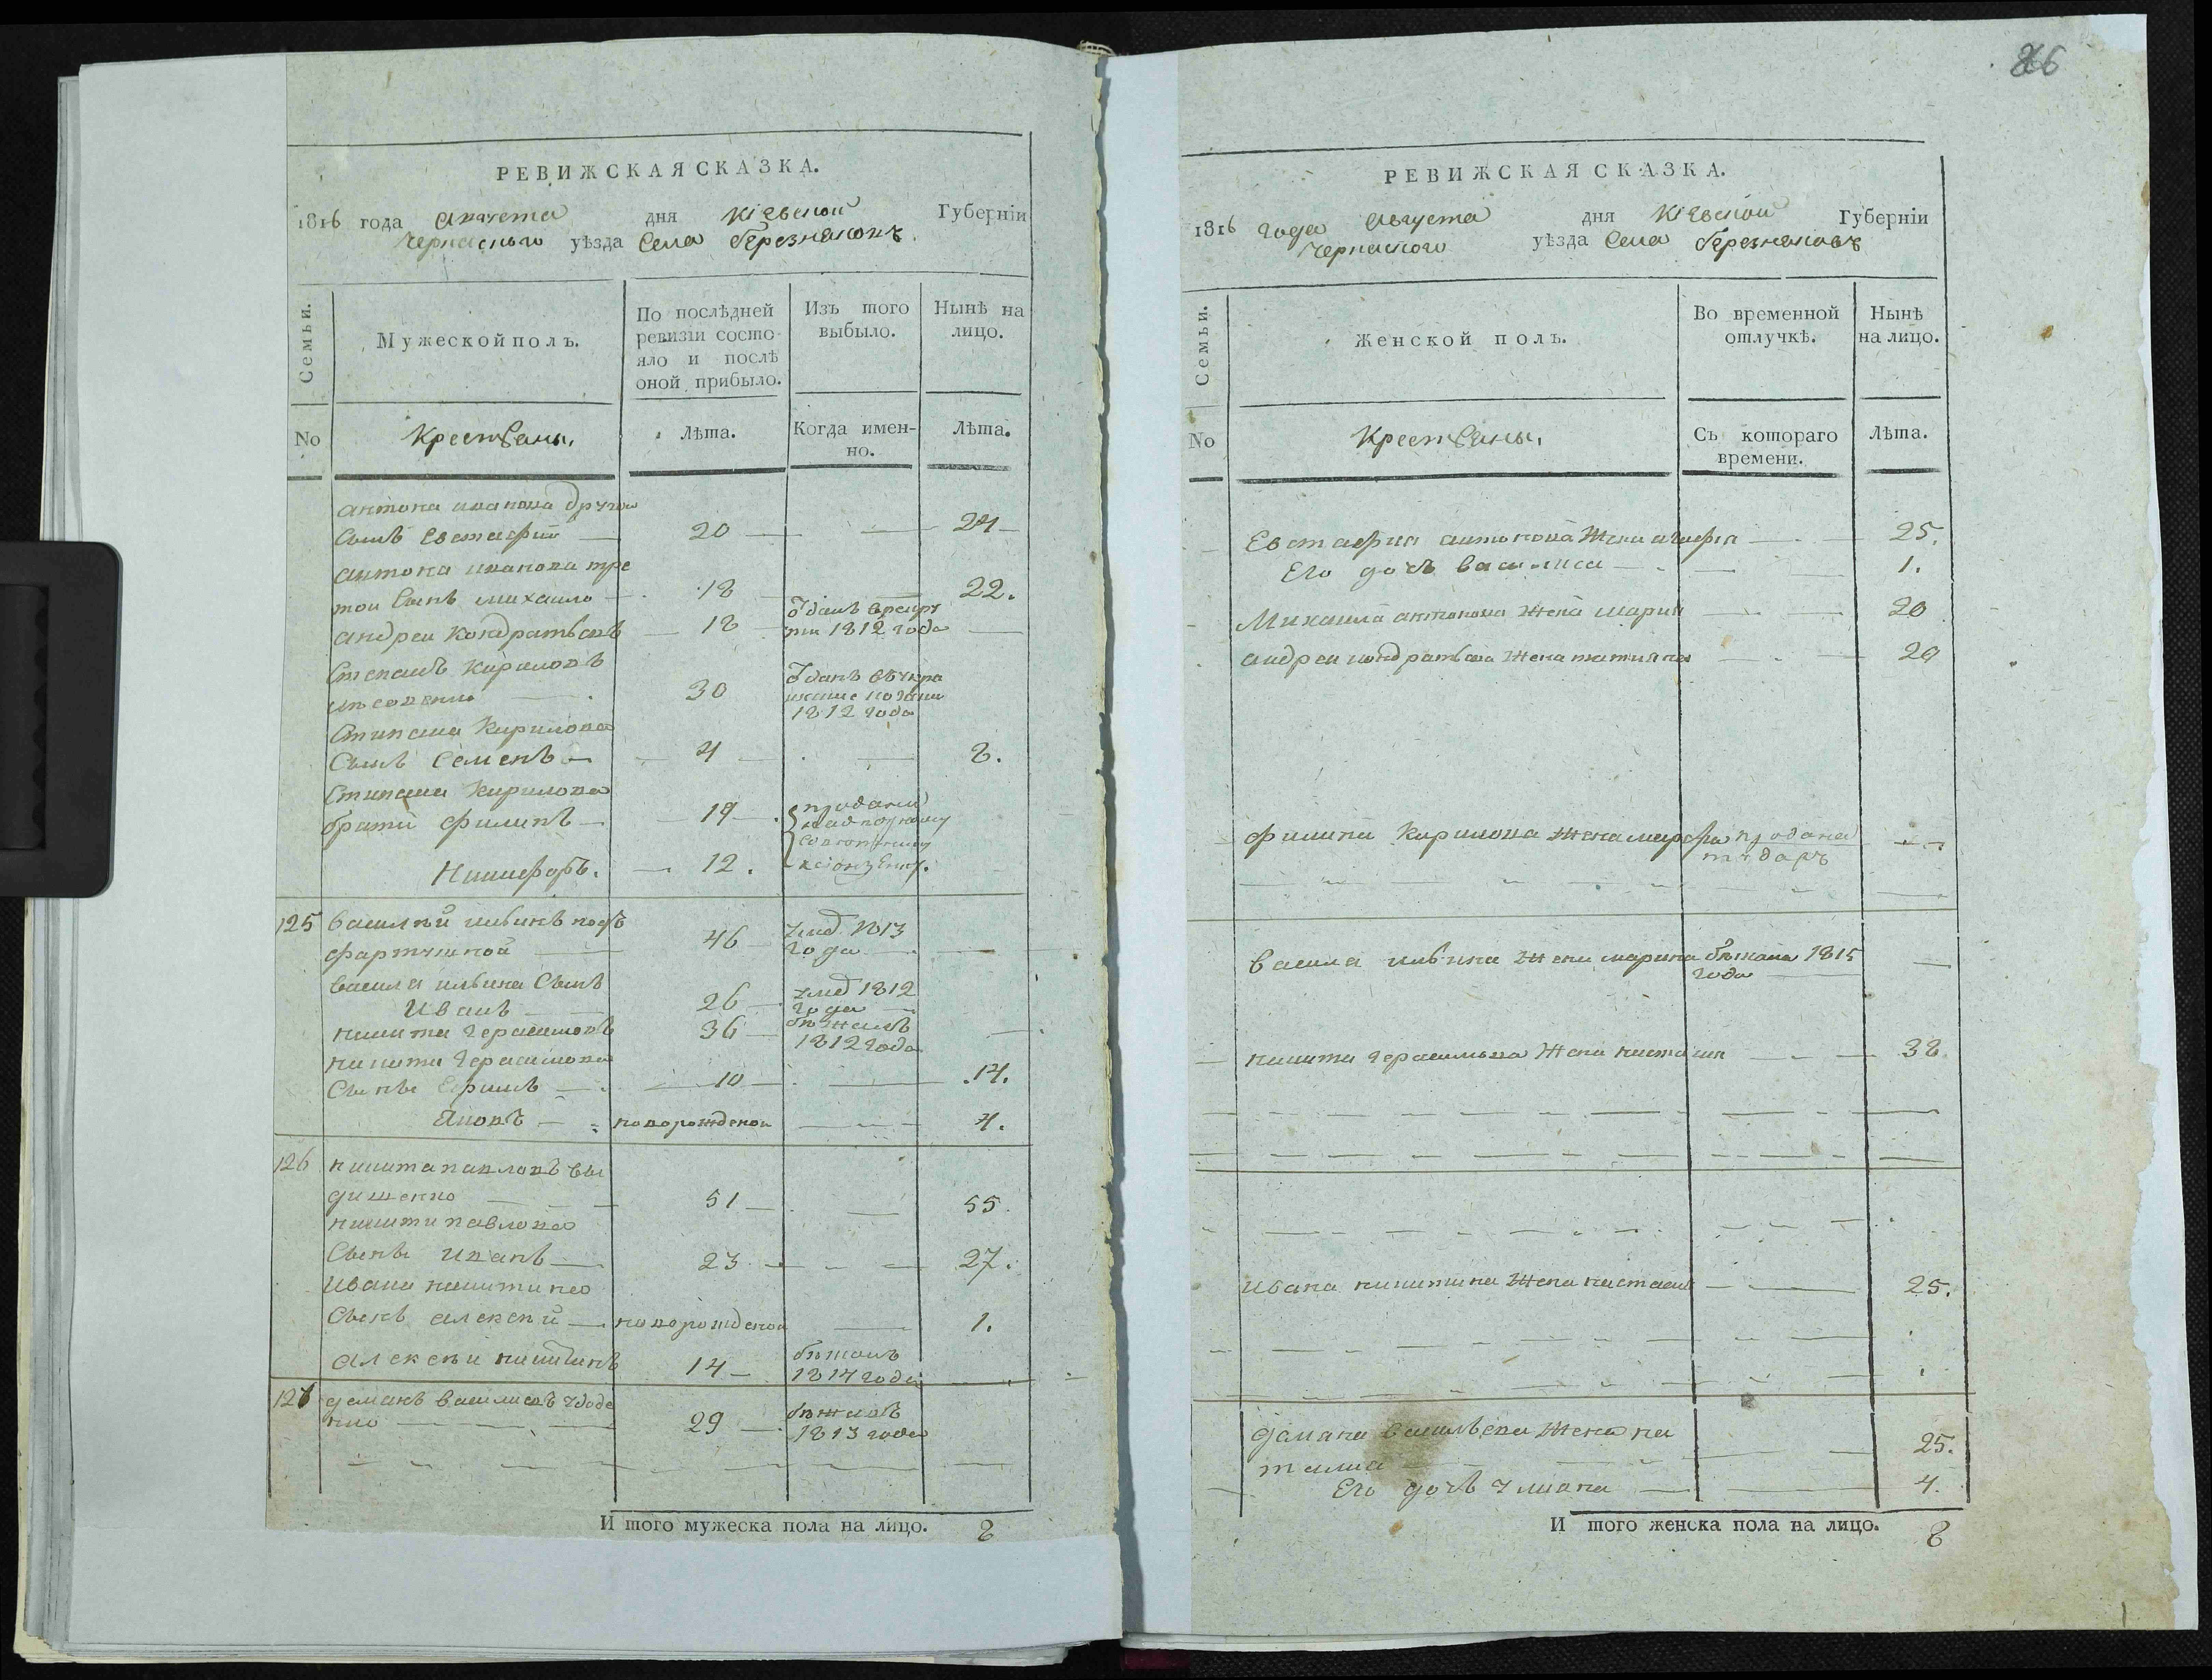 РЕВИЖСКАЯ СКАЗКА.
1816 года Августа дня Кіевской Губерніи
Черкаского уѣзда Села Березняковъ.
Семьи.
Мужеской полъ.
По послѣдней
ревизіи состо-
яло и послѣ
оной прибыло.
Изъ того
выбыло.
Нынѣ на
лицо.
No
Крестьяны,
Лѣта.
Когда имен-
но.
Лѣта.
антона иванова другой
Сынъ Евстафий 20 24
антона иванова тре
той Сынъ михаило 18 22.
андреи Кондратьевъ 18 ѿданъ врекру
ты 1812 года
Степанъ Кириловъ
30 ѿданъ
1812 года
Степана Кирилова
Сынъ Семенъ 4 8.
Степана Кирилова
братя Филипъ 19 проданы
Никифоръ. 12.
125 василий ильинъ
46 умер 1813
года
василя ильина Сынъ
Иванъ 26 умер 1812
года
никита герасимовъ 36 бѣжалъ
1812 года
никити герасимова
Сынъ Ефимъ 10 14.
Яковъ новорожденой 4.
126 никита павловъ
51 55.
никити павлова
Сынъ иванъ 23 27.
ивана никитина
Сынъ алексей новорожденой 1.
алексей никитинъ 14 бѣжалъ
1814 года
127 демянъ василиевъ
29 бѣжалъ
1813 года
И того мужеска пола на лицо. 8
26
РЕВИЖСКАЯ СКАЗКА.
1816 года Августа дня Кіевской Губерніи
Черкаского уѣзда Села Березняковъ
Семьи.
Женской полъ.
Во временной
отлучкѣ.
Нынѣ
на лицо.
No
Крестьяны,
Съ котораго
времени.
Лѣта.
Евстафия антонова Жена агафия 25.
Его дочь василиса 1.
Михаила антонова жена мария 20
андреи кондратьева жена татияна 20
филипа Кирилова жена марфа продана
василя ильина жена марина бѣжала 1815
года
никити герасимова жена настасия 38
ивана никитина жена настасия 25.
демяна василъева жена на
талия 25.
Его дочь улиана 4.
И того женска пола на лицо. 8